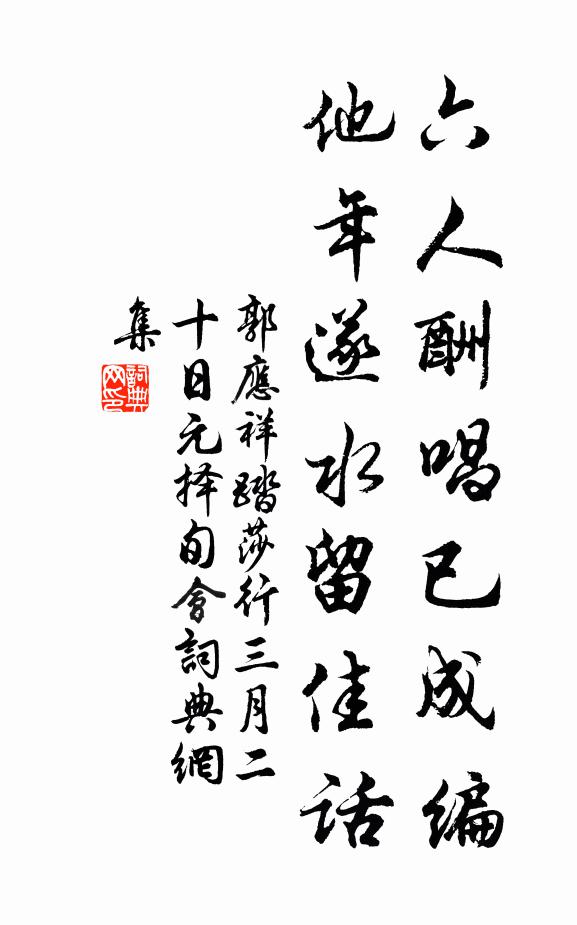 六人酬唱已成編
他年遂水留佳話
郭應祥踏莎行三月二
十日元择旬會詞典網
集
詞典
网印